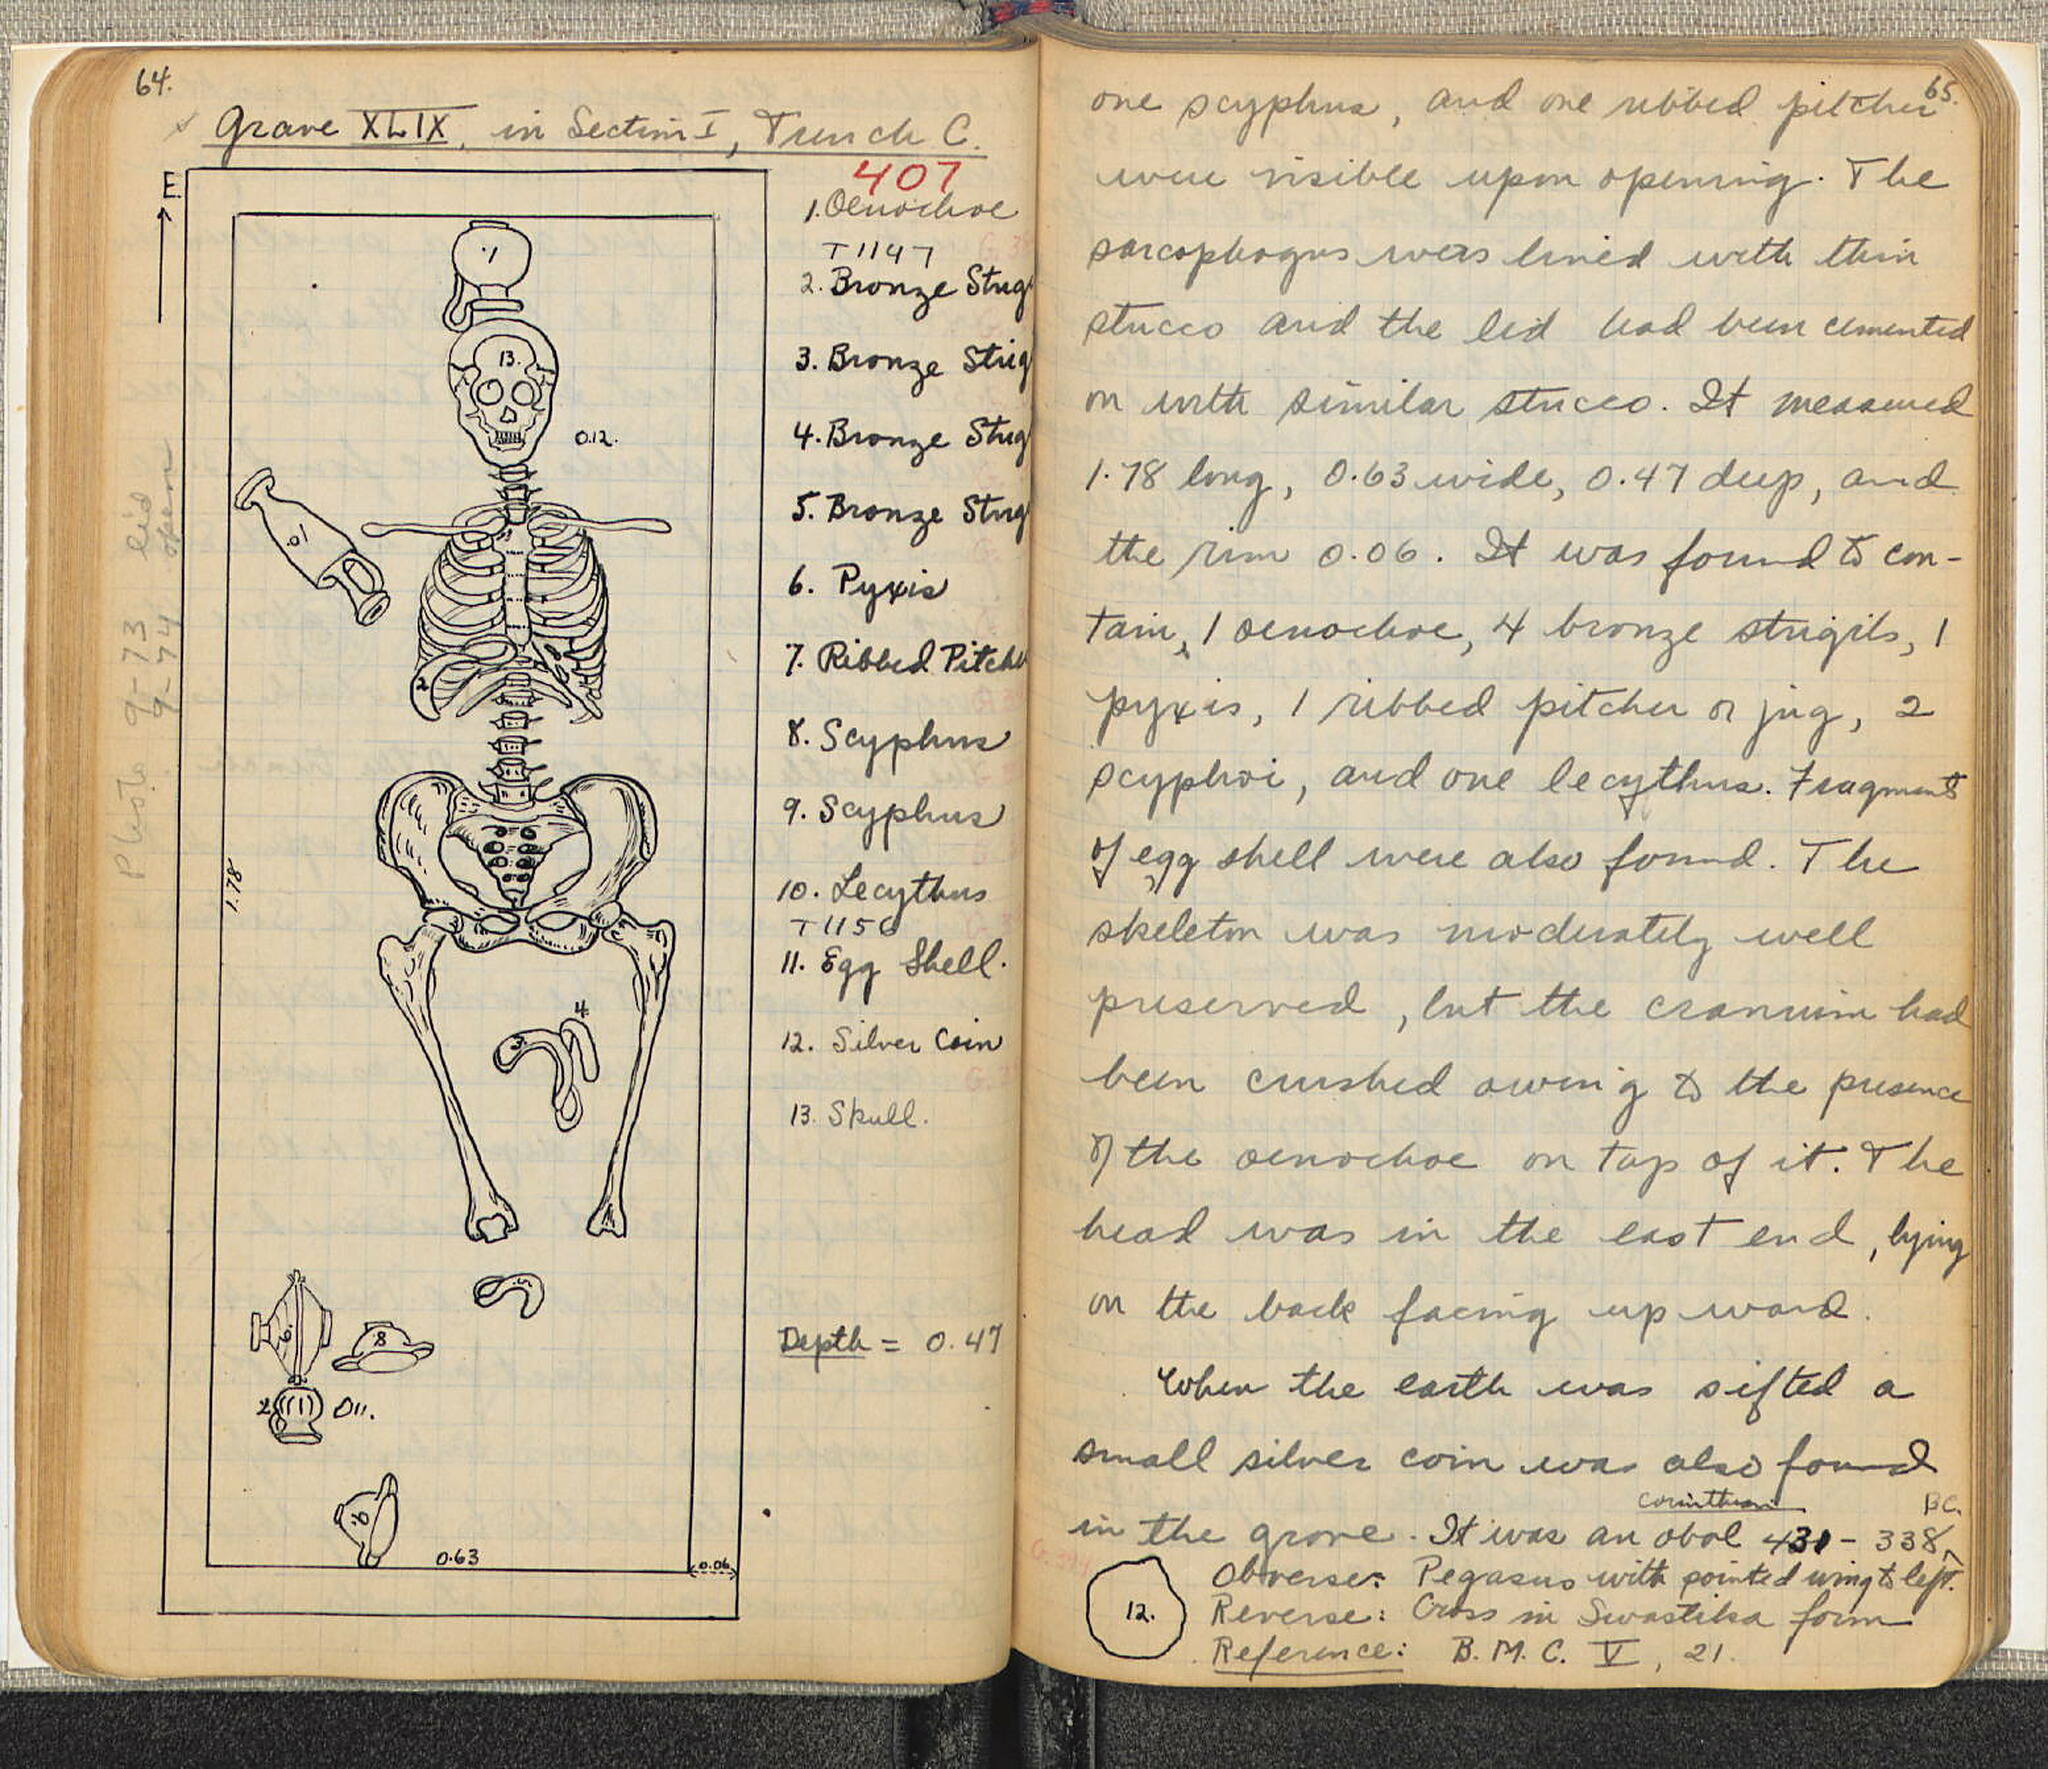 64.
Grave XLIX, in Section I, Trench C.
407
E.
1. Oenochoe
T 1147
2. Bronze Strig
3. Bronze Strig
4. Bronze Strig
5. Bronze Strig
6. Pyxis
7. Ribbed Pitche
8. Scyphus
9. Scyphus
10. Lecythus
T 1150
11. Egg Shell.
12. Silver Coin
13. Skull.
Depth = 0.47
Photo 9-73 lid
9-74 open
1
13.
0.12.
10
2
1.78
3
4
5
6
8
7
011.
9
0.63
0.06
65.
one scyphus, and one ribbed pitcher
were visible upon opening. The
sarcophagus was lined with thin
stucco and the lid had been cemented
on with similar stucco. It measured
1.78 long, 0.63 wide, 0.47 deep, and
the rim 0.06. It was found to con-
tain, 1 oenochoe, 4 bronze strigils, 1
pyxis, 1 ribbed pitcher or jug, 2
scyphoi, and one lecythus. Fragments
of egg shell were also found. The
skeleton was moderately well
preserved, but the cranium had
been crushed owing to the presence
of the oenochoe on top of it. The
head was in the east end, lying
on the back facing up ward.
When the earth was sifted a
small silver coin was also found
Corinthian B.C.
in the grave. It was an obol 431-338
Obverse: Pegasus with pointed wing to left.
Reverse: Cross in Swastika form
Reference: B.M.C. V, 21.
12.